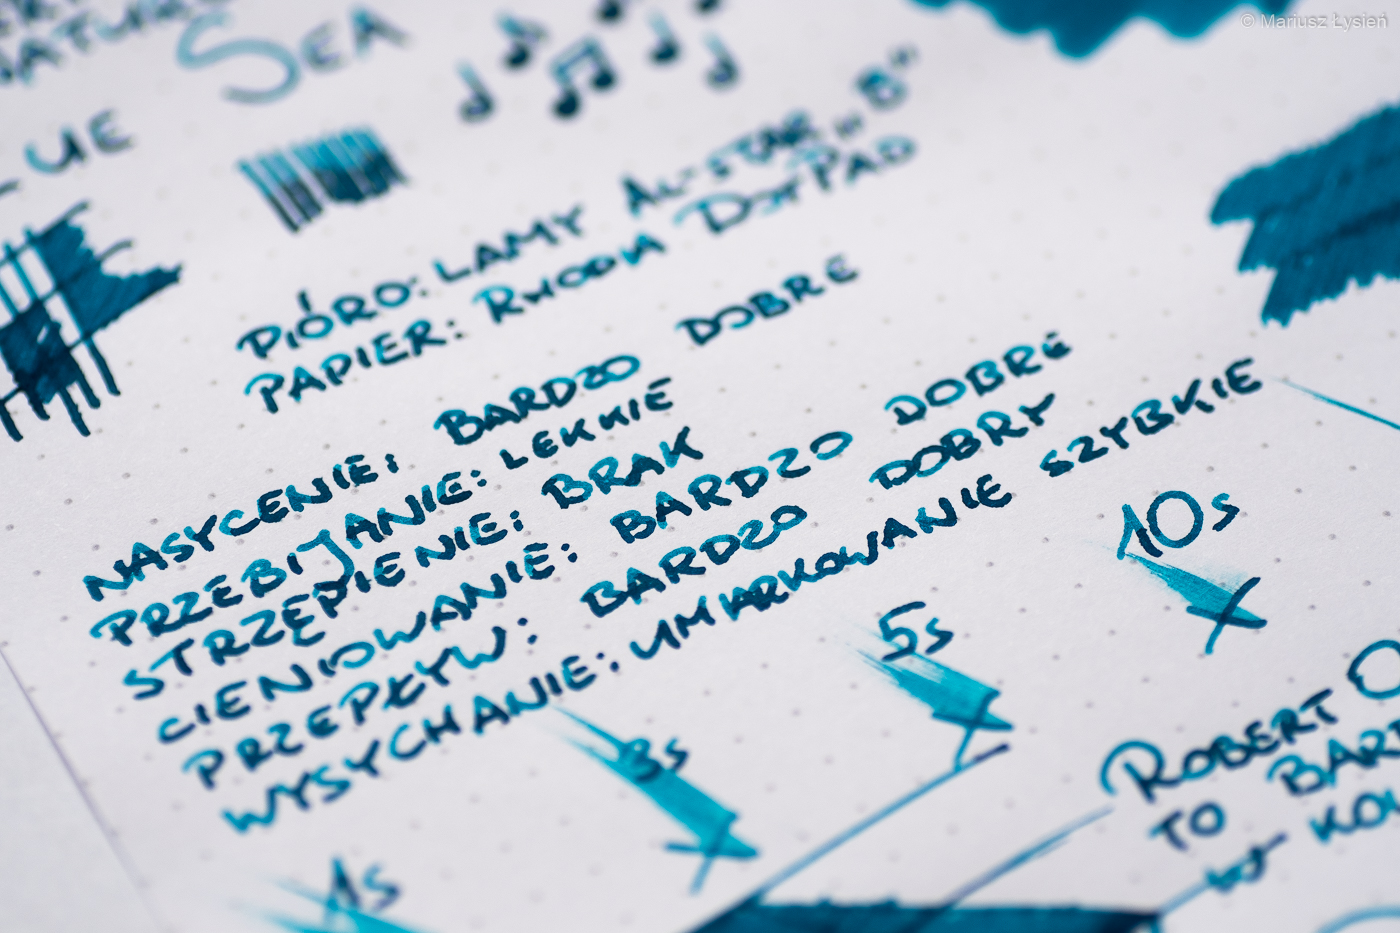 © Mariusz Łysień
SEA
UE
PIÓRO: LAMY AL-STAR „B"
PAPIER: RHODIA DOTPAD
NASYCENIE: BARDZO DOBRE
PRZEBIJANIE: LEKKIE
STRZĘPIENIE: BRAK
CIENIOWANIE: BARDZO DOBRE
PRZEPŁYW: BARDZO DOBRY
WYSYCHANIE: UMIARKOWANIE SZYBKIE
1s
3s
5s
10s
ROBERT O
TO BAR
KO